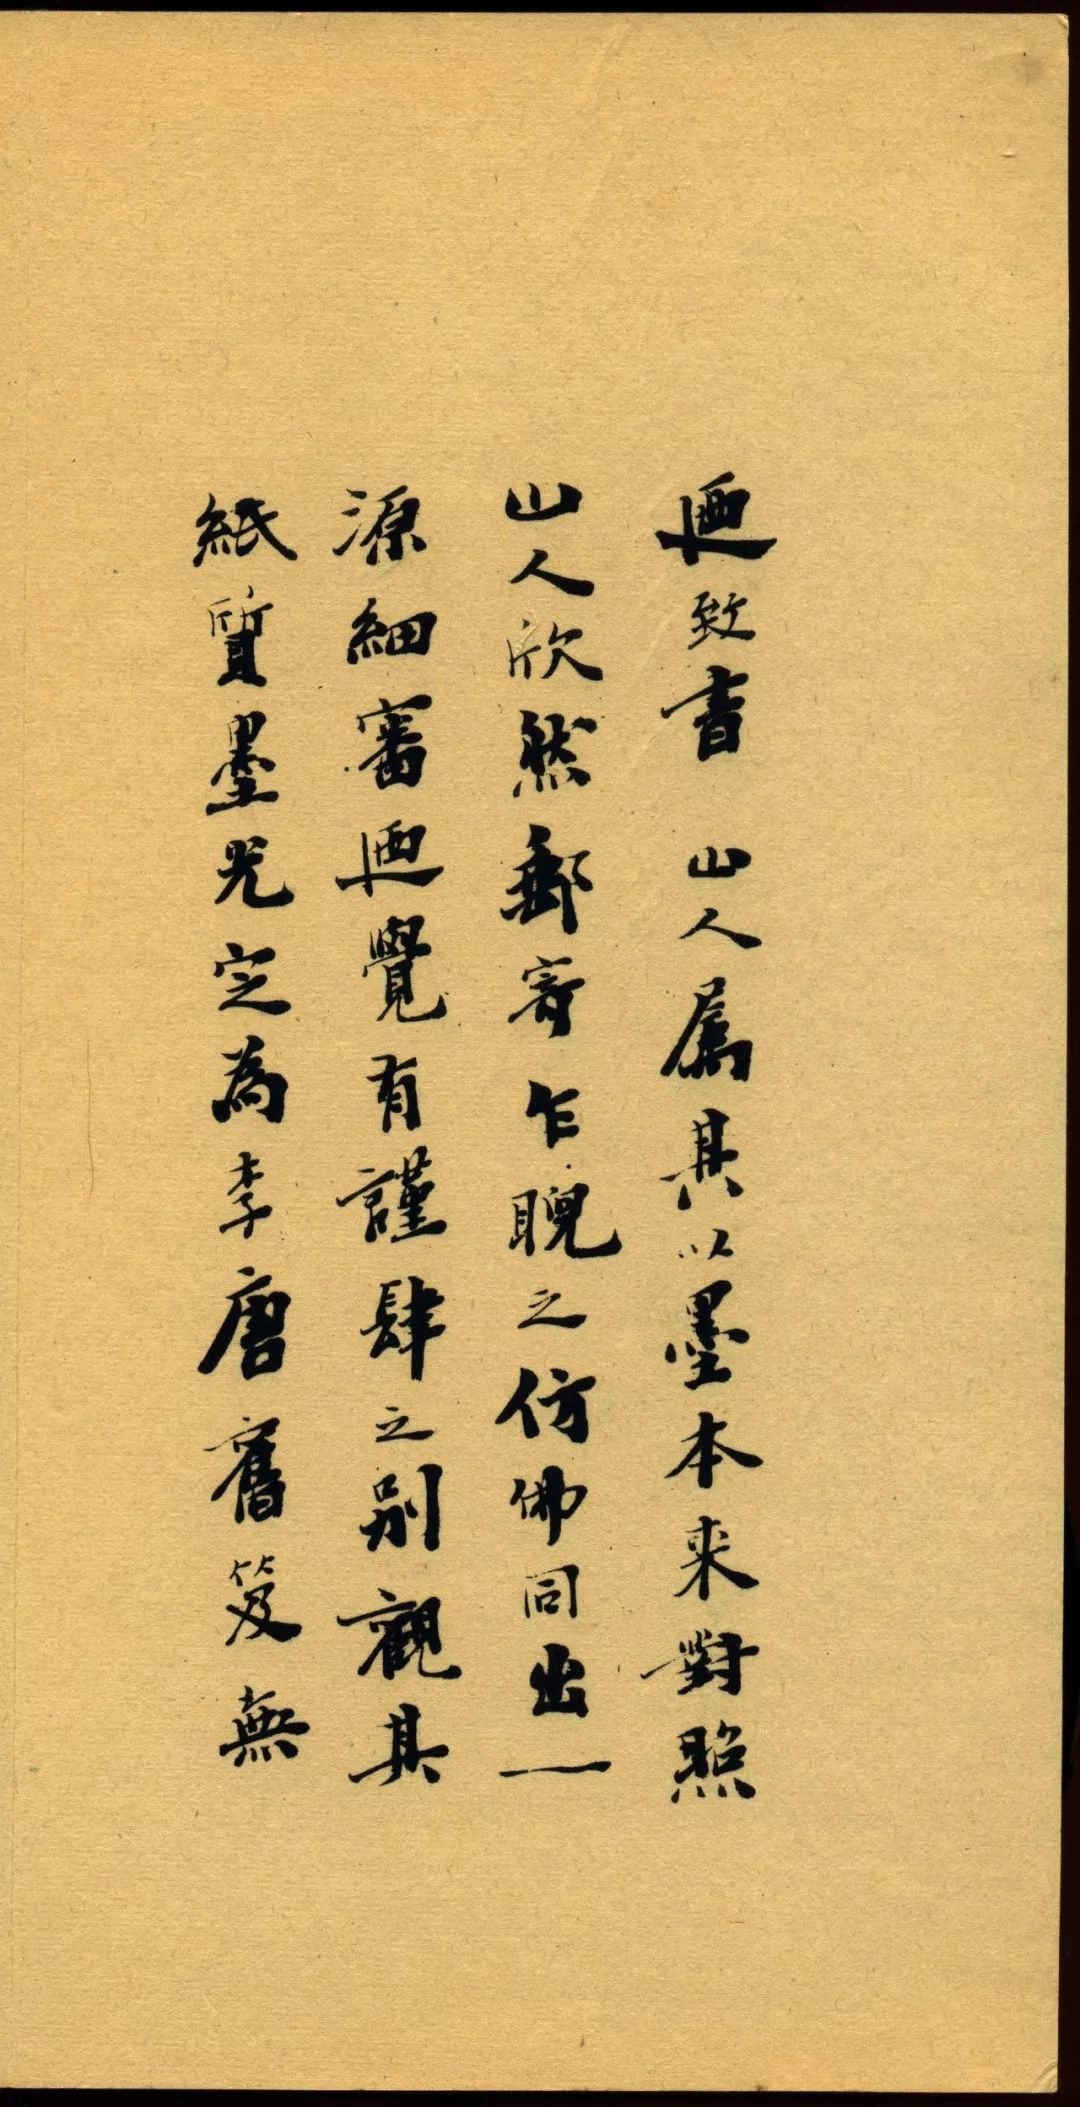 迺致書 山人屬其以墨本来對照
山人欣然郵寄乍睨之仿佛同出一
源細審迺覺有謹肆之別觀其
紙質墨光定為李唐舊笈無